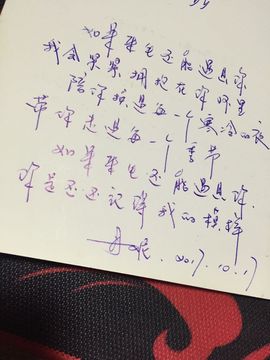 如果来生还能遇见你
我会紧紧拥抱在你怀里
陪你捱过每一个寒冷的夜
带你走过每一个季节
如果来生还能遇见你.
你是否还记得我的模样
2017.10.17